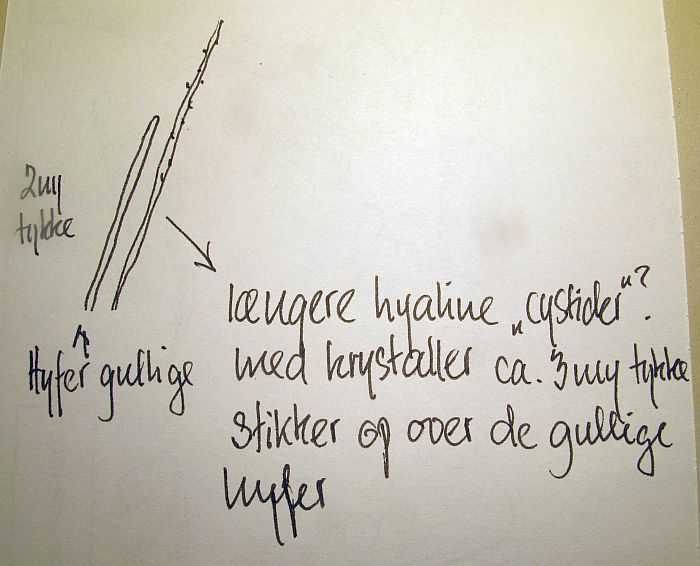 2my
tykke
Hyfer gullige
længere hyaline „cystider"?
med krystaller ca. 3my tykke
stikker op over de gullige
hyfer